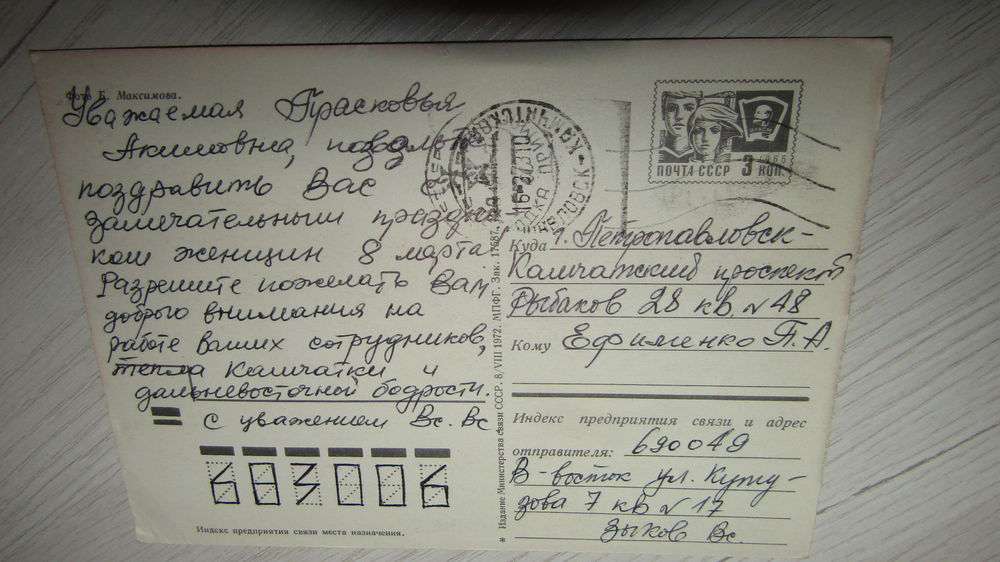 Фото Б. Максимова.
Уважаемая Прасковья
Акимовна, позвольте
поздравить Вас с
замечательным праздни-
ком женщин 8 марта.
Разрешите пожелать Вам
доброго внимания на
работе ваших сотрудников,
тепла Камчатки и
дальневосточной бодрости.
с уважением Вс. Вс
683006
Индекс предприятия связи места назначения.
* Издание Министерства связи СССР. 8/VIII 1972. МПФГ. Зак. 17587.
ПОЧТА СССР 3 КОП.
1966
КАМЧАТСКАЯ
Куда г. Петропавловск-
Камчатский проспект
Рыбаков 28 кв. № 48
Кому Ефименко П.А.
Индекс предприятия связи и адрес
отправителя: 690049
В-восток ул. Куту-
зова 7 кв № 17
Зыков Вс.